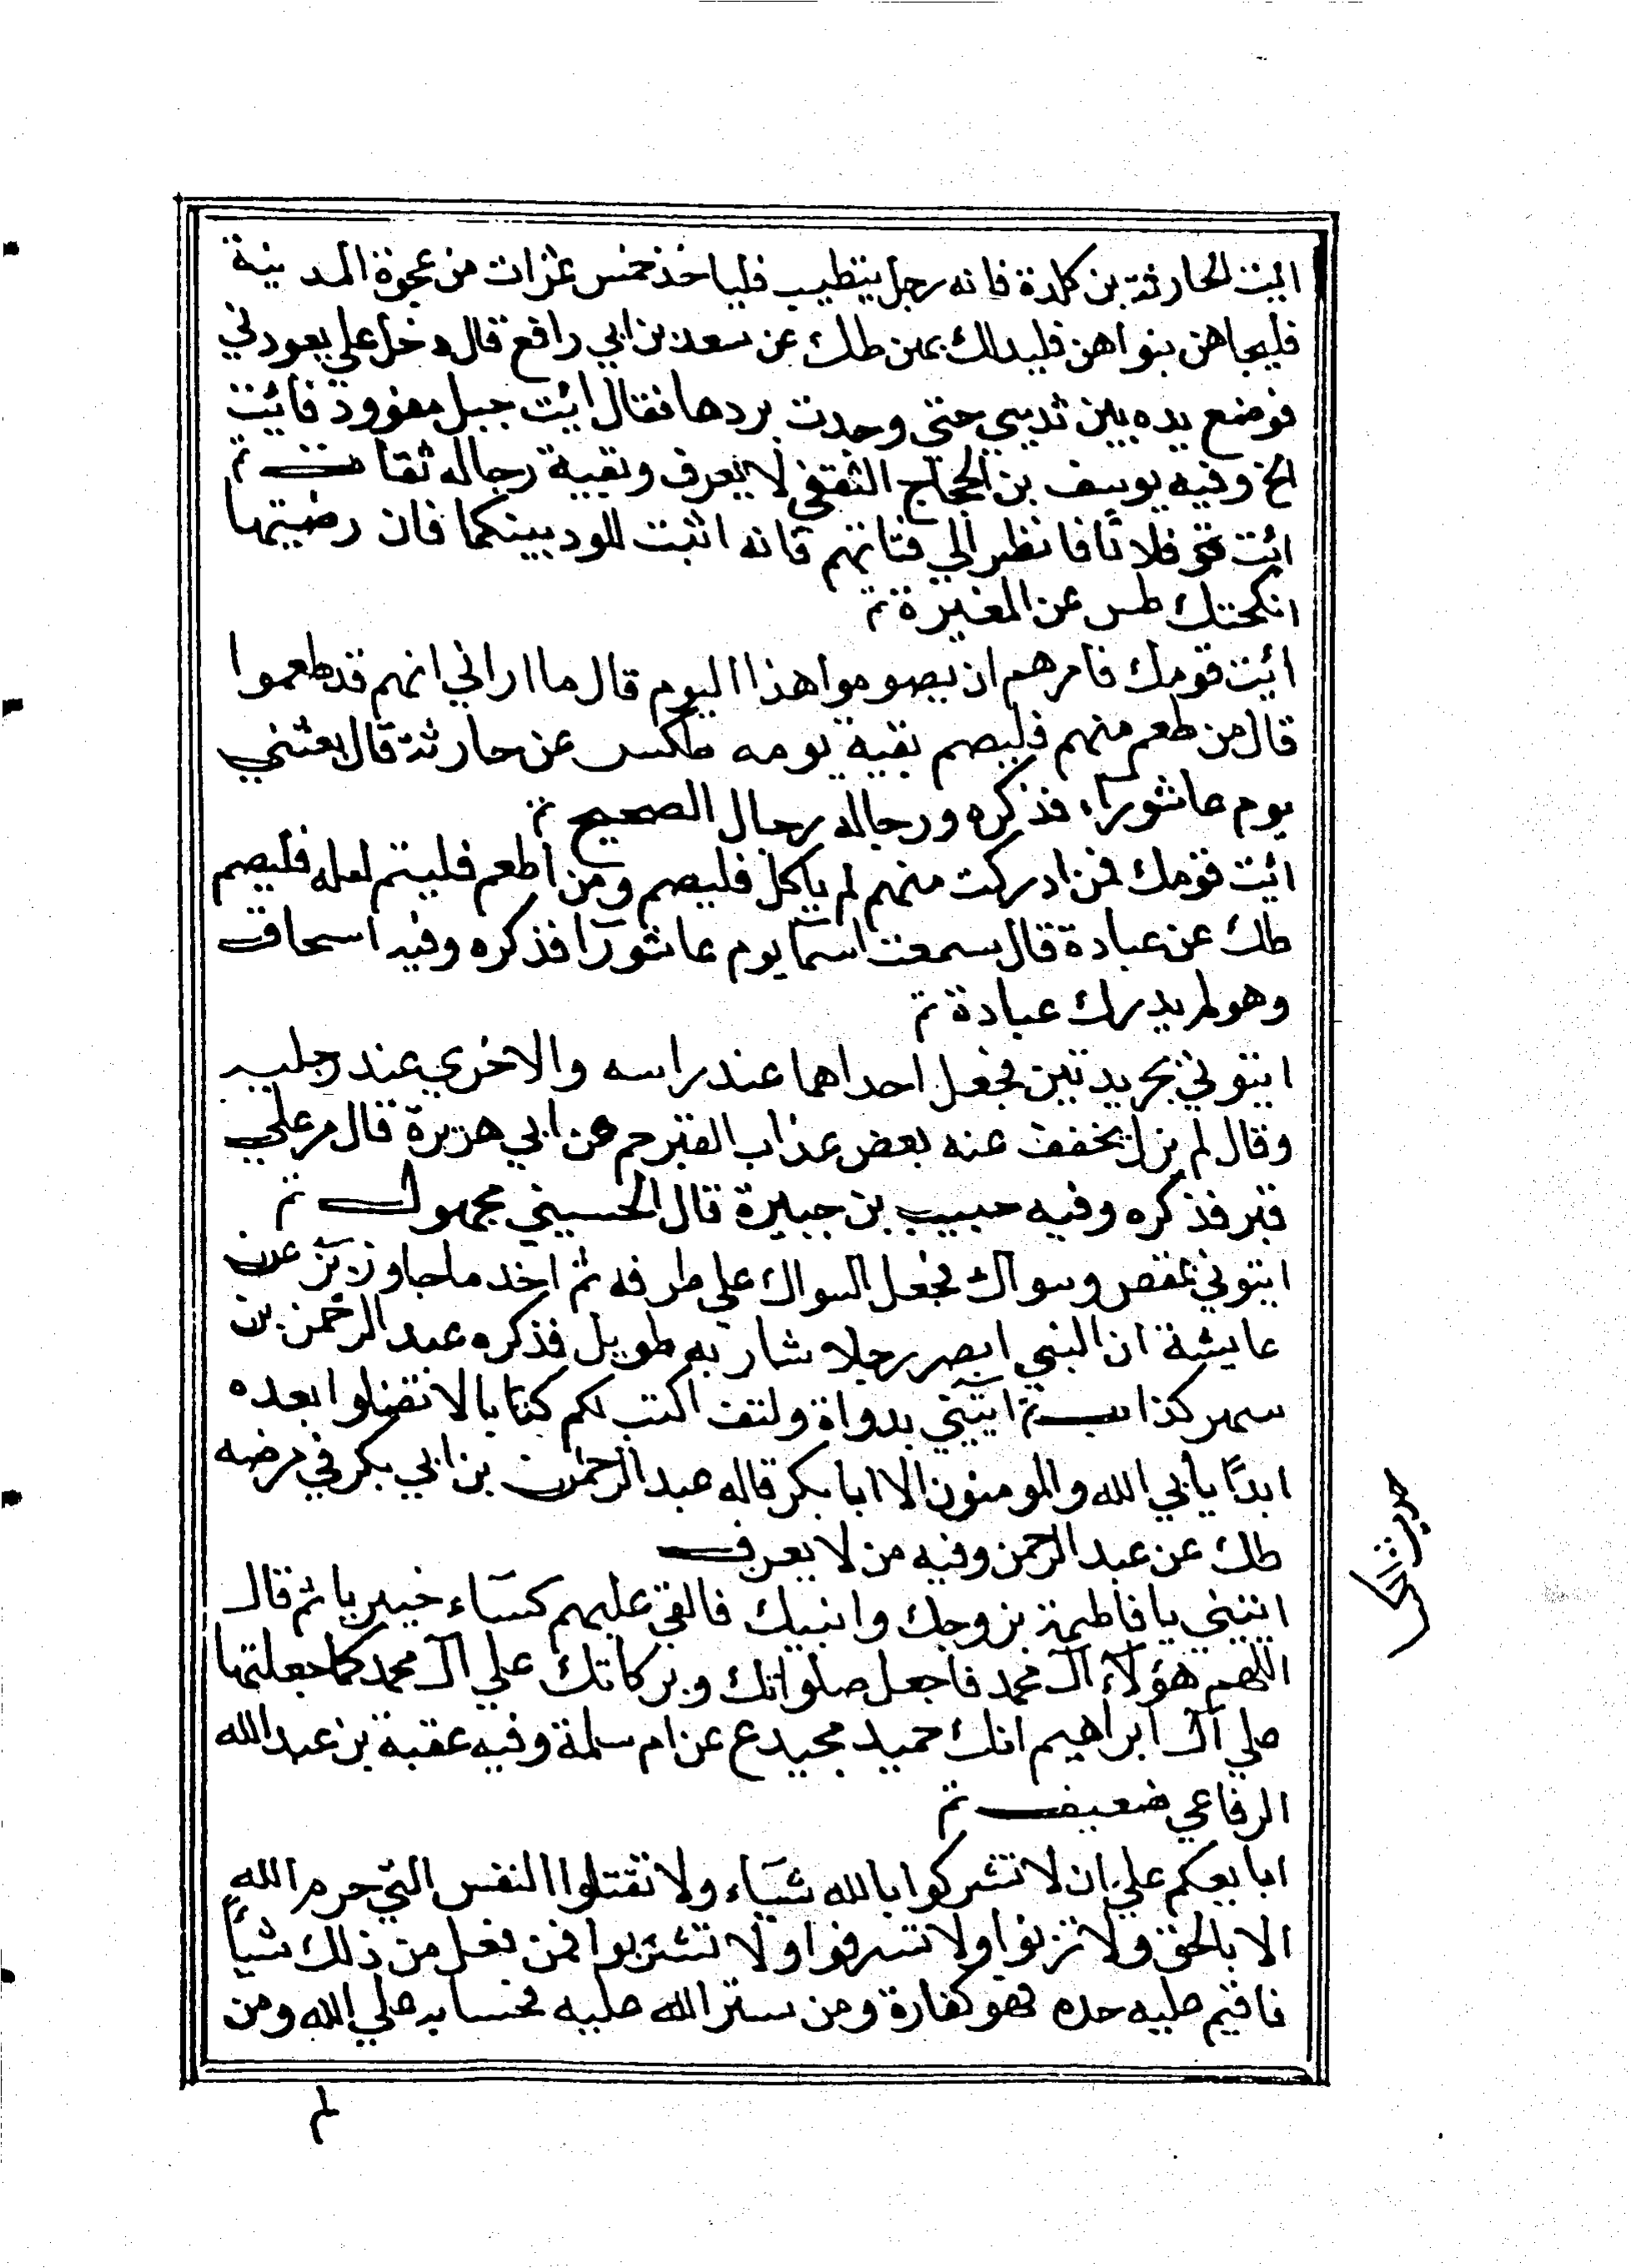 ائيت الحارثة بن كلدة فانه رجل يتطيب فلياخذ خمس تمرات من عجوة المدينة
فليجاهن بنواهن فليدلك بهن طك عن سعد بن ابي رافع قال دخل علي يعودني
فوضع يده بين ثديي حتى وجدت بردها فقال ائت جبل مفوود فائت
الخ وفيه يوسف بن الحجاج الثقفي لا يعرف وبقية رجاله ثقات تم
ائت فلانا فانظر الي فتاتهم فانه اثبت للود بينكما فان رضيتها
انكحتك طس عن المغيرة تم
ائيت قومك فامرهم ان يصوموا هذا اليوم قال ما اراني انهم قد طعموا
قال من طعم منهم فليصم بقية يومه طكس عن حارثة قال بعثني
يوم عاشورآء فذكره ورجاله رجال الصحيح تم
ائيت قومك فمن ادركت منهم لم ياكل فليصم ومن طعم فليتم لعله فليصم
طك عن عبادة قال سمعت اسما يوم عاشورآ فذكره وفيه اسحاق
وهو لم يدرك عبادة تم
ايتوني بجريدتين فجعل احداهما عند راسه والاخري عند رجليه
وقال لم يزل يخفف عنه بعض عذاب القبر حم عن ابي هريرة قال مر علي
قبر فذكره وفيه حبيب بن جبيرة قال الحسيني مجهول تم
ايتوني بمقص وسواك فجعل السواك علي طرفه ثم اخد ما جاوز بز عن
عايشة ان النبي ابصر رجلا شاربه طويل فذكره عبد الرحمن بن
سهر كذاب تم ايتيني بدواة ولتف اكتب لكم كتابا لا تضلوا بعده
ابدًا يابي الله والمومنون الا ابا بكر قاله عبد الرحمن بن ابي بكر في مرضه
طك عن عبد الرحمن وفيه من لا يعرف
ايتيني يا فاطمة بزوجك وابنيك فالقي عليهم كسآء خيبريا ثم قال
اللهم هؤلآء ال محمد فاجعل صلواتك وبركاتك علي ال محمد كما جعلتها
علي ال ابراهيم انك حميد مجيد ع عن ام سلمة وفيه عقبة بن عبد الله
الرفاعي ضعيف تم
ابايعكم علي ان لا تشركوا بالله شيآء ولا تقتلوا النفس التي حرم الله
الا بالحق ولا تزنوا ولا تسرفوا ولا تشربوا فمن فعل من ذلك شيأً
فاقيم عليه حده فهو كفارة ومن ستر الله عليه فحسابه علي الله ومن
لم